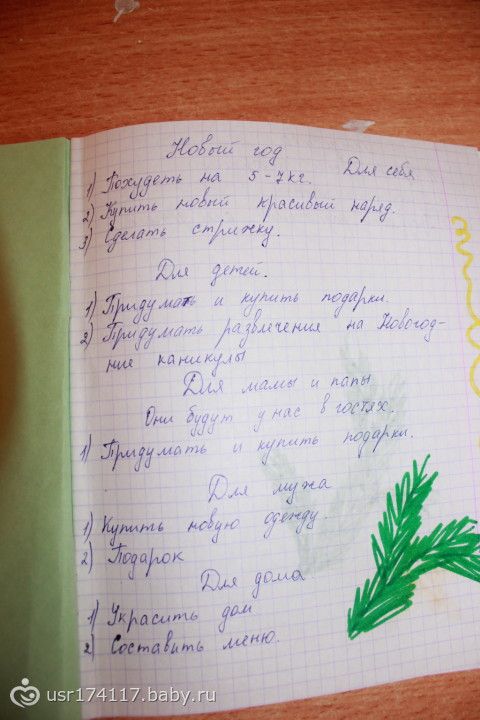 Новый год
Для себя
1) Похудеть на 5-7кг.
2) Купить новый красивый наряд.
3) Сделать стрижку.
Для детей.
1) Придумать и купить подарки.
2) Придумать развлечения на Новогод-
ние каникулы
Для мамы и папы
Они будут у нас в гостях.
1) Придумать и купить подарки.
Для мужа
1) Купить новую одежду.
2) Подарок
Для дома
1) Украсить дом
2) Составить меню.
usr174117.baby.ru